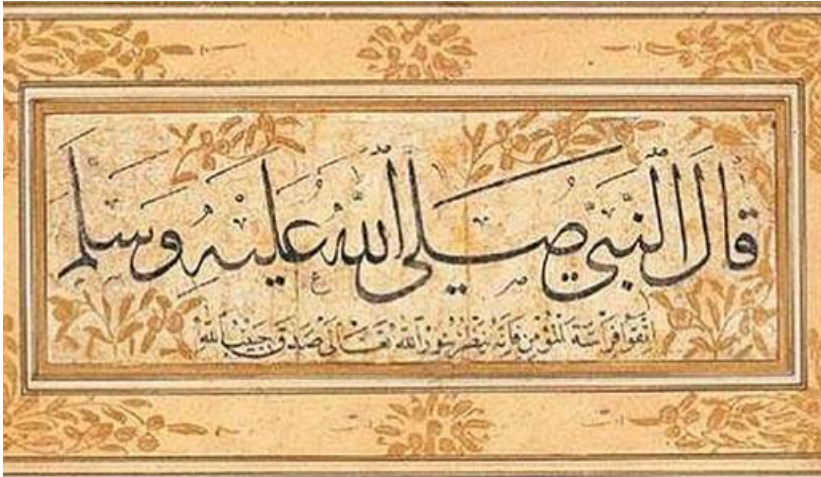 قَالَ النَّبِيُّ صَلَّى اللّٰهُ عَلَيْهِ وَسَلَّمَ
اتقوا فراسة المؤمن فانه ينظر بنور الله تعالى صدق حبيب الله